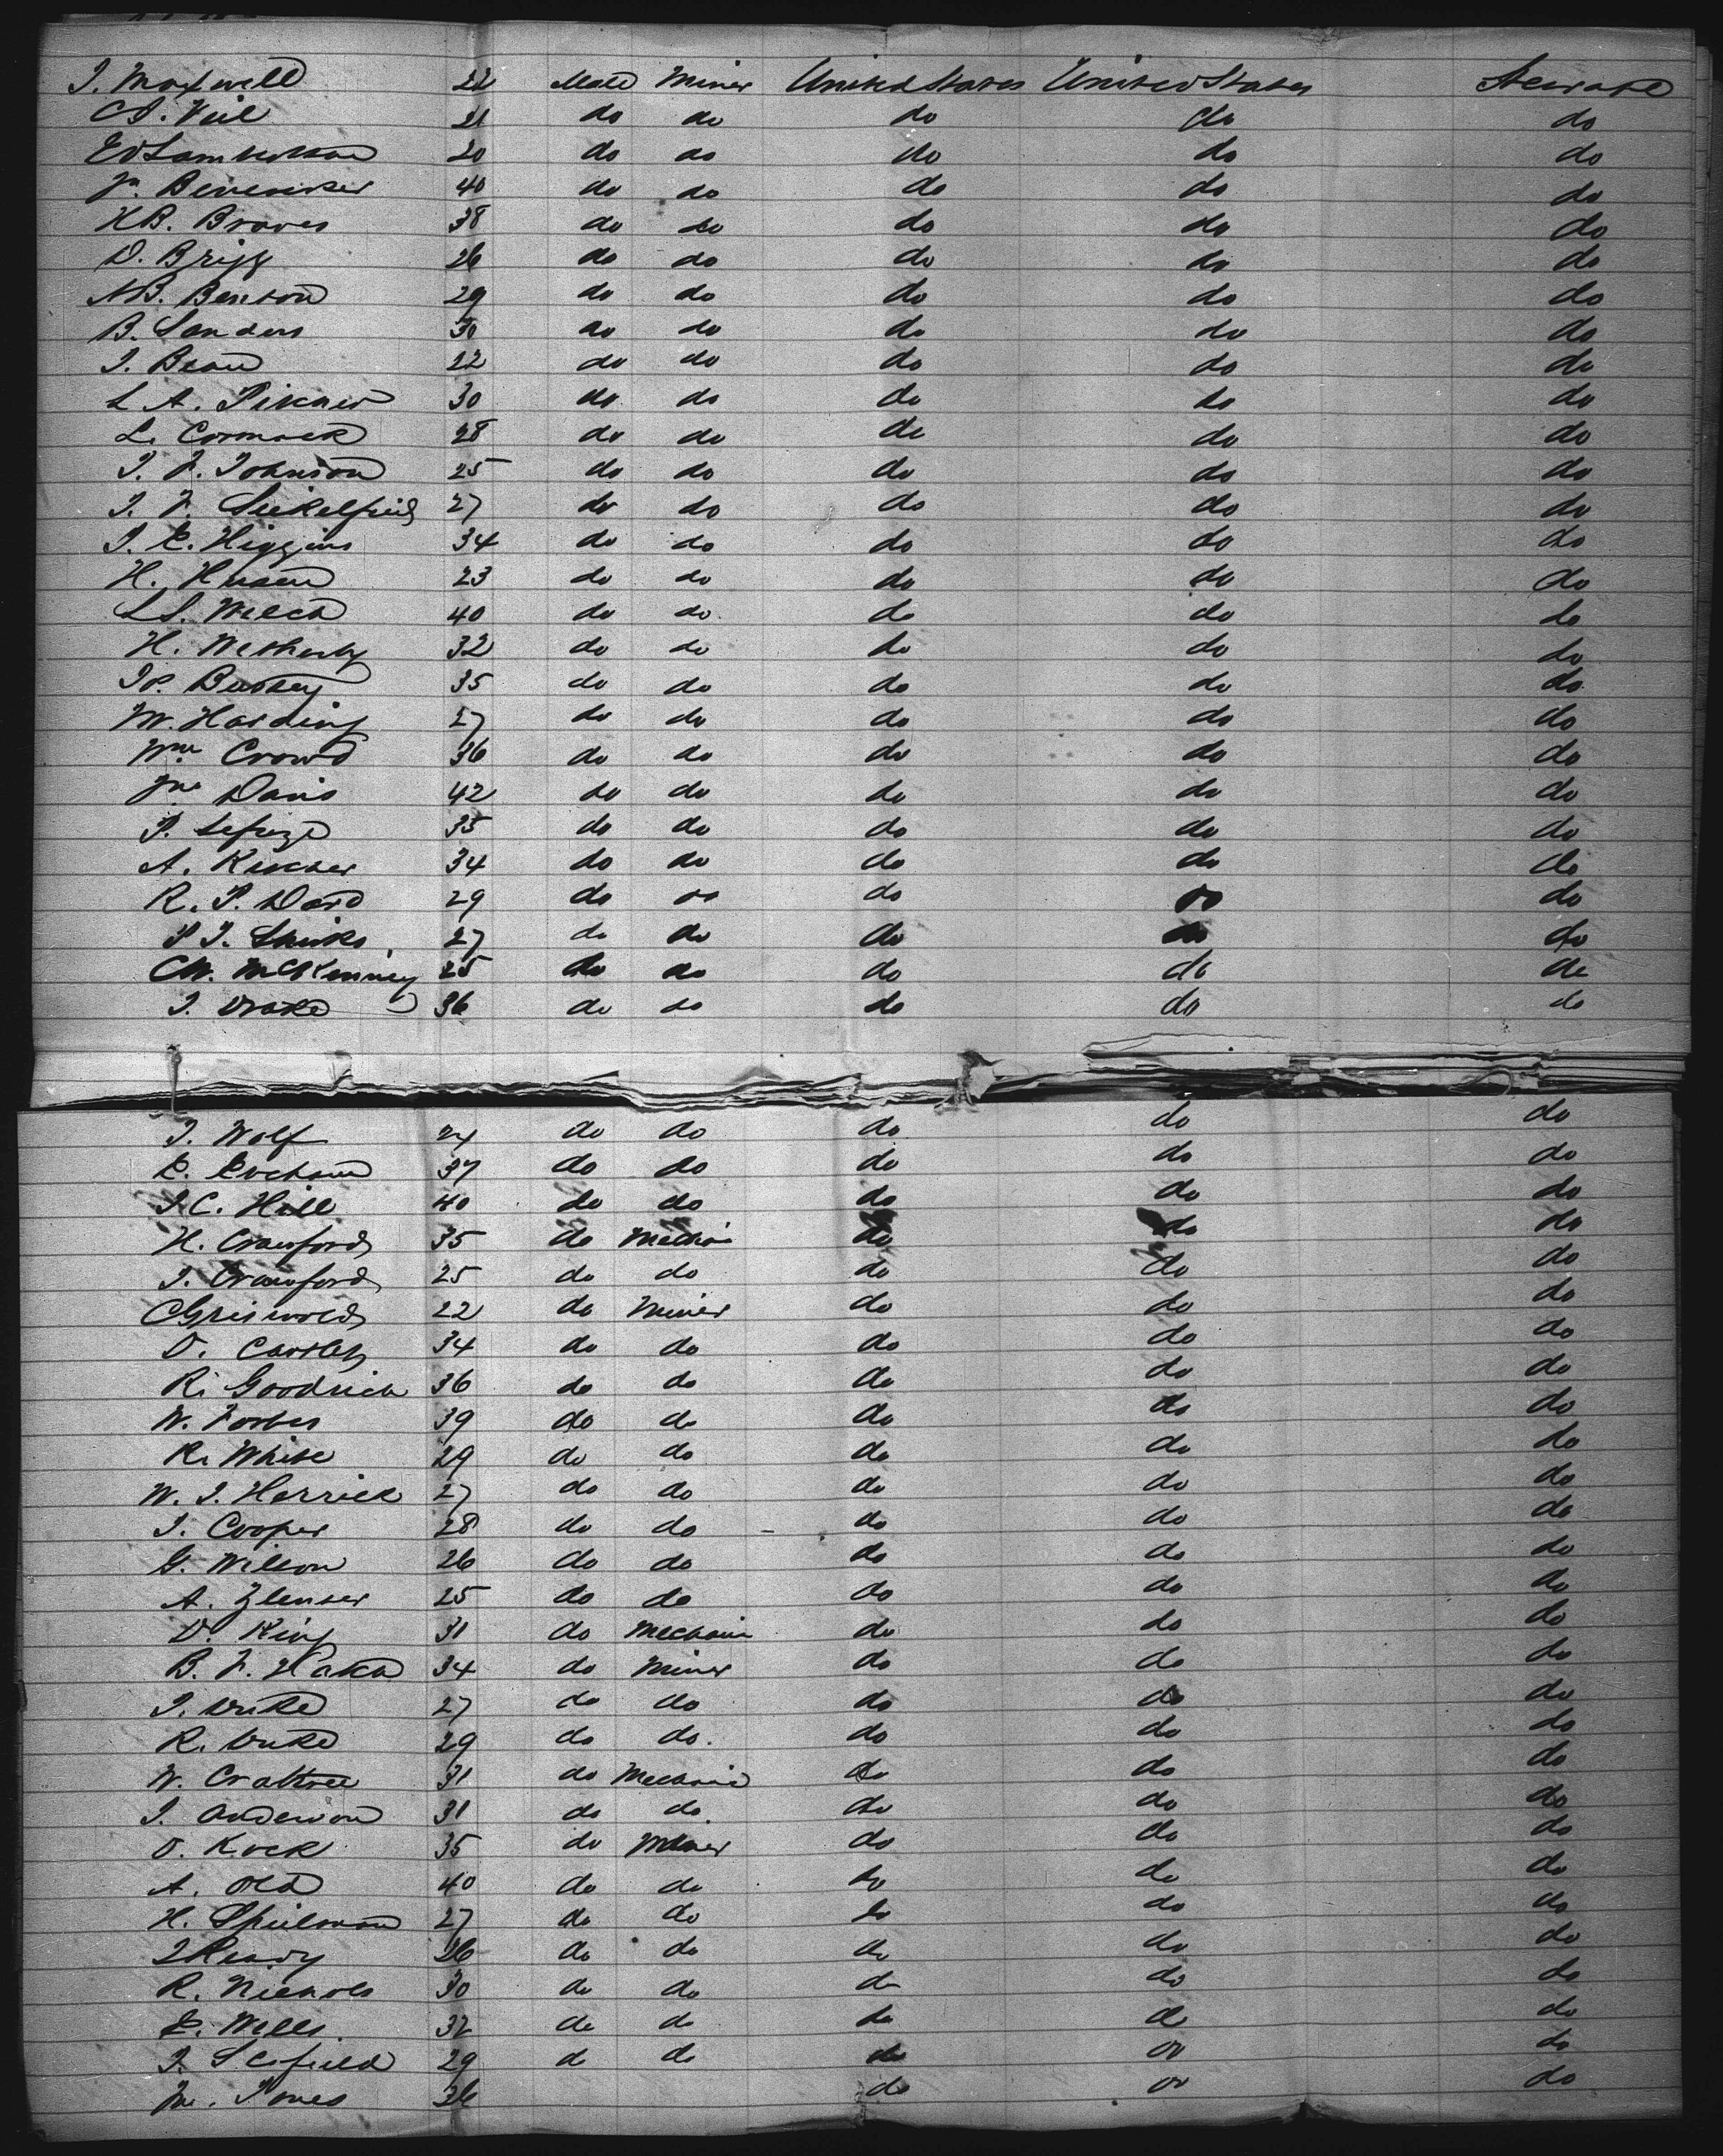 J. Maxwell 22 Male Miner United States United States Steerage
C. Viel 21 do do do do do
Ed Lamberson 20 do do do do do
40 do do do do do
H.B. Braves 38 do do do do do
D. Brigg 26 do do do do do
N.B. Benson 29 do do do do do
B. Sanders 30 do do do do do
J. Bean 22 do do do do do
L. A. 30 do do do do do
L. Cormack 28 do do do do do
J. F. Johnson 25 do do do do do
J. F. 27 do do do do do
J. E. Higgins 34 do do do do do
H. Husen 23 do do do do do
L S. Welch 40 do do do do do
H. Wetherby 32 do do do do do
Jos. Bushey 35 do do do do do
M. Harding 27 do do do do do
Wm Crowd 36 do do do do do
Jno Davis 42 do do do do do
P. 35 do do do do do
A. Kircher 34 do do do do do
R. P. Dard 29 do do do do do
P J. Shirks 27 do do do do do
C.W. McKenney 25 do do do do do
J. Drake 36 do do do do do
J. Wolf 24 do do do do do
E. 37 do do do do do
J C. Hill 40 do do do do do
H. Crawford 35 do Mechanic do do do
J. Crawford 25 do do do do do
C Griswold 22 do Miner do do do
D. Castley 34 do do do do do
R. Goodrich 36 do do do do do
W. Forbes 39 do do do do do
R. White 29 do do do do do
W. J. Herrick 27 do do do do do
J. Cooper 28 do do do do do
G. Wilson 26 do do do do do
A. 25 do do do do do
D. King 31 do Mechanic do do do
B. F. 34 do Miner do do do
J. Duke 27 do do do do do
R. Duke 29 do do do do do
W. Crabtree 31 do Mechanic do do do
J. Anderson 31 do do do do do
O. Kock 35 do Miner do do do
A. Old 40 do do do do do
H. Spielman 27 do do do do do
26 do do do do do
R. Nichols 30 do do do do do
E. Wells 32 do do do do do
J. Scofield 29 do do do do do
Jones 36 do do do